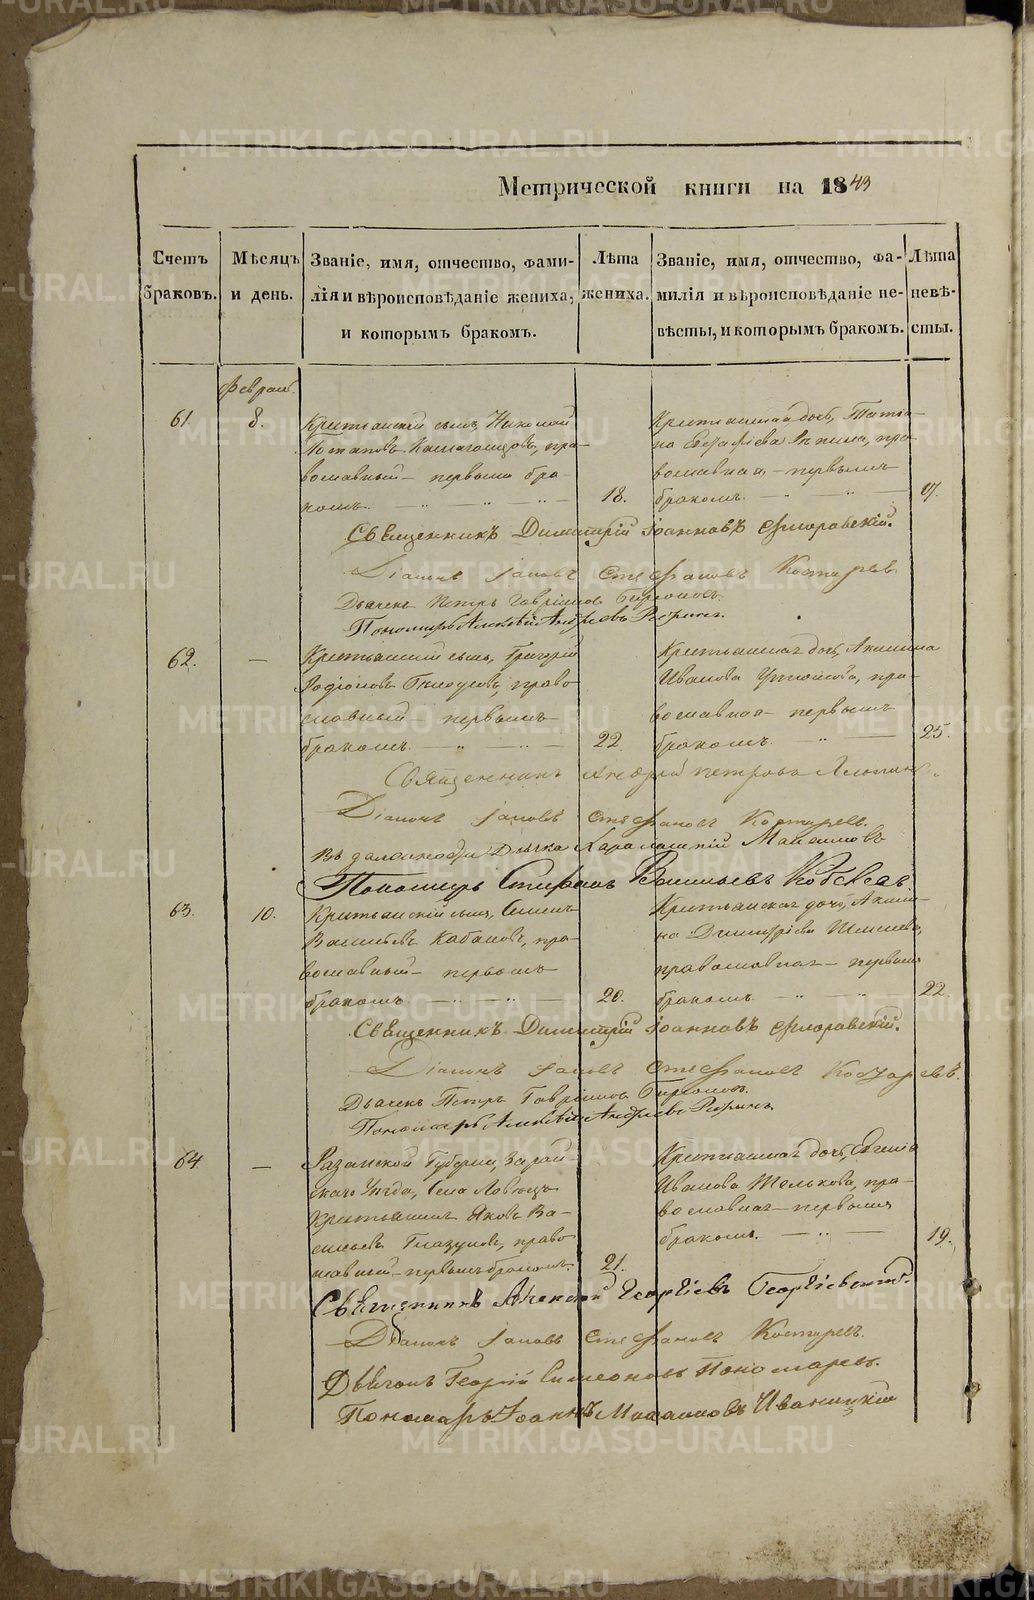 Метрической книги на 1843
Счетъ браковъ.
Мѣсяцъ и день.
Званіе, имя, отчество, фами-
лія и вѣроисповѣданіе жениха,
и которымъ бракомъ.
Лѣта
жениха.
Званіе, имя, отчество, фа-
милія и вѣроисповѣданіе не-
вѣсты, и которымъ бракомъ.
Лѣта
невѣ-
сты.
Феврал.
61. 8. Крестьянскій сынъ, Николай
Потаповъ пра-
вославный – первымъ бра-
комъ. 18.
Крестьянская дочь, Татья-
на пра-
вославная, – первымъ
бракомъ. 17.
Священникъ Димитрій Іоанновъ Флоравскій.
Діаконъ Іаковъ Стефановъ Костаревъ
Дьячекъ Петръ Гавріиловъ
Пономарь Алексѣй Андреевъ
62. — Крестьянскій сынъ, Григорій
Родіоновъ право-
славный – первымъ
бракомъ. 22.
Крестьянская дочь, Акилина
Иванова пра-
вославная – первымъ
бракомъ. 25.
Священникъ Андрей Петровъ
Діаконъ Іаковъ Стефановъ Костаревъ.
Въ должности Дьячка Максимовъ
Пономарь Стефанъ Васильевъ
63. 10. Крестьянскій сынъ, Семенъ
Васильевъ Кабановъ, пра-
вославный – первымъ
бракомъ. 20.
Крестьянская дочь, Акили-
на Димитріева
православная – первымъ
бракомъ. 22.
Священникъ Димитрій Іоанновъ Флоравскій.
Діаконъ Іаковъ Стефановъ Костаревъ.
Дьячекъ Петръ Гавріиловъ
Пономарь Алексѣй Андреевъ
64. — Рязанской Губерніи, Зарай-
скаго Уѣзда, Села Ловецъ
Крестьянинъ Яковъ Ва-
сильевъ Глазуновъ, право-
славный – первымъ бракомъ. 21.
Крестьянская дочь, Евгенія
Иванова пра-
вославная – первымъ
бракомъ. 19.
Священникъ Алексій Георгіевъ Георгіевскій.
Діаконъ Іаковъ Стефановъ Костаревъ.
Дьячокъ Георгій Симеоновъ Пономаревъ.
Пономарь Іоаннъ Михаиловъ Иваницкій
METRIKI.GASO-URAL.RU